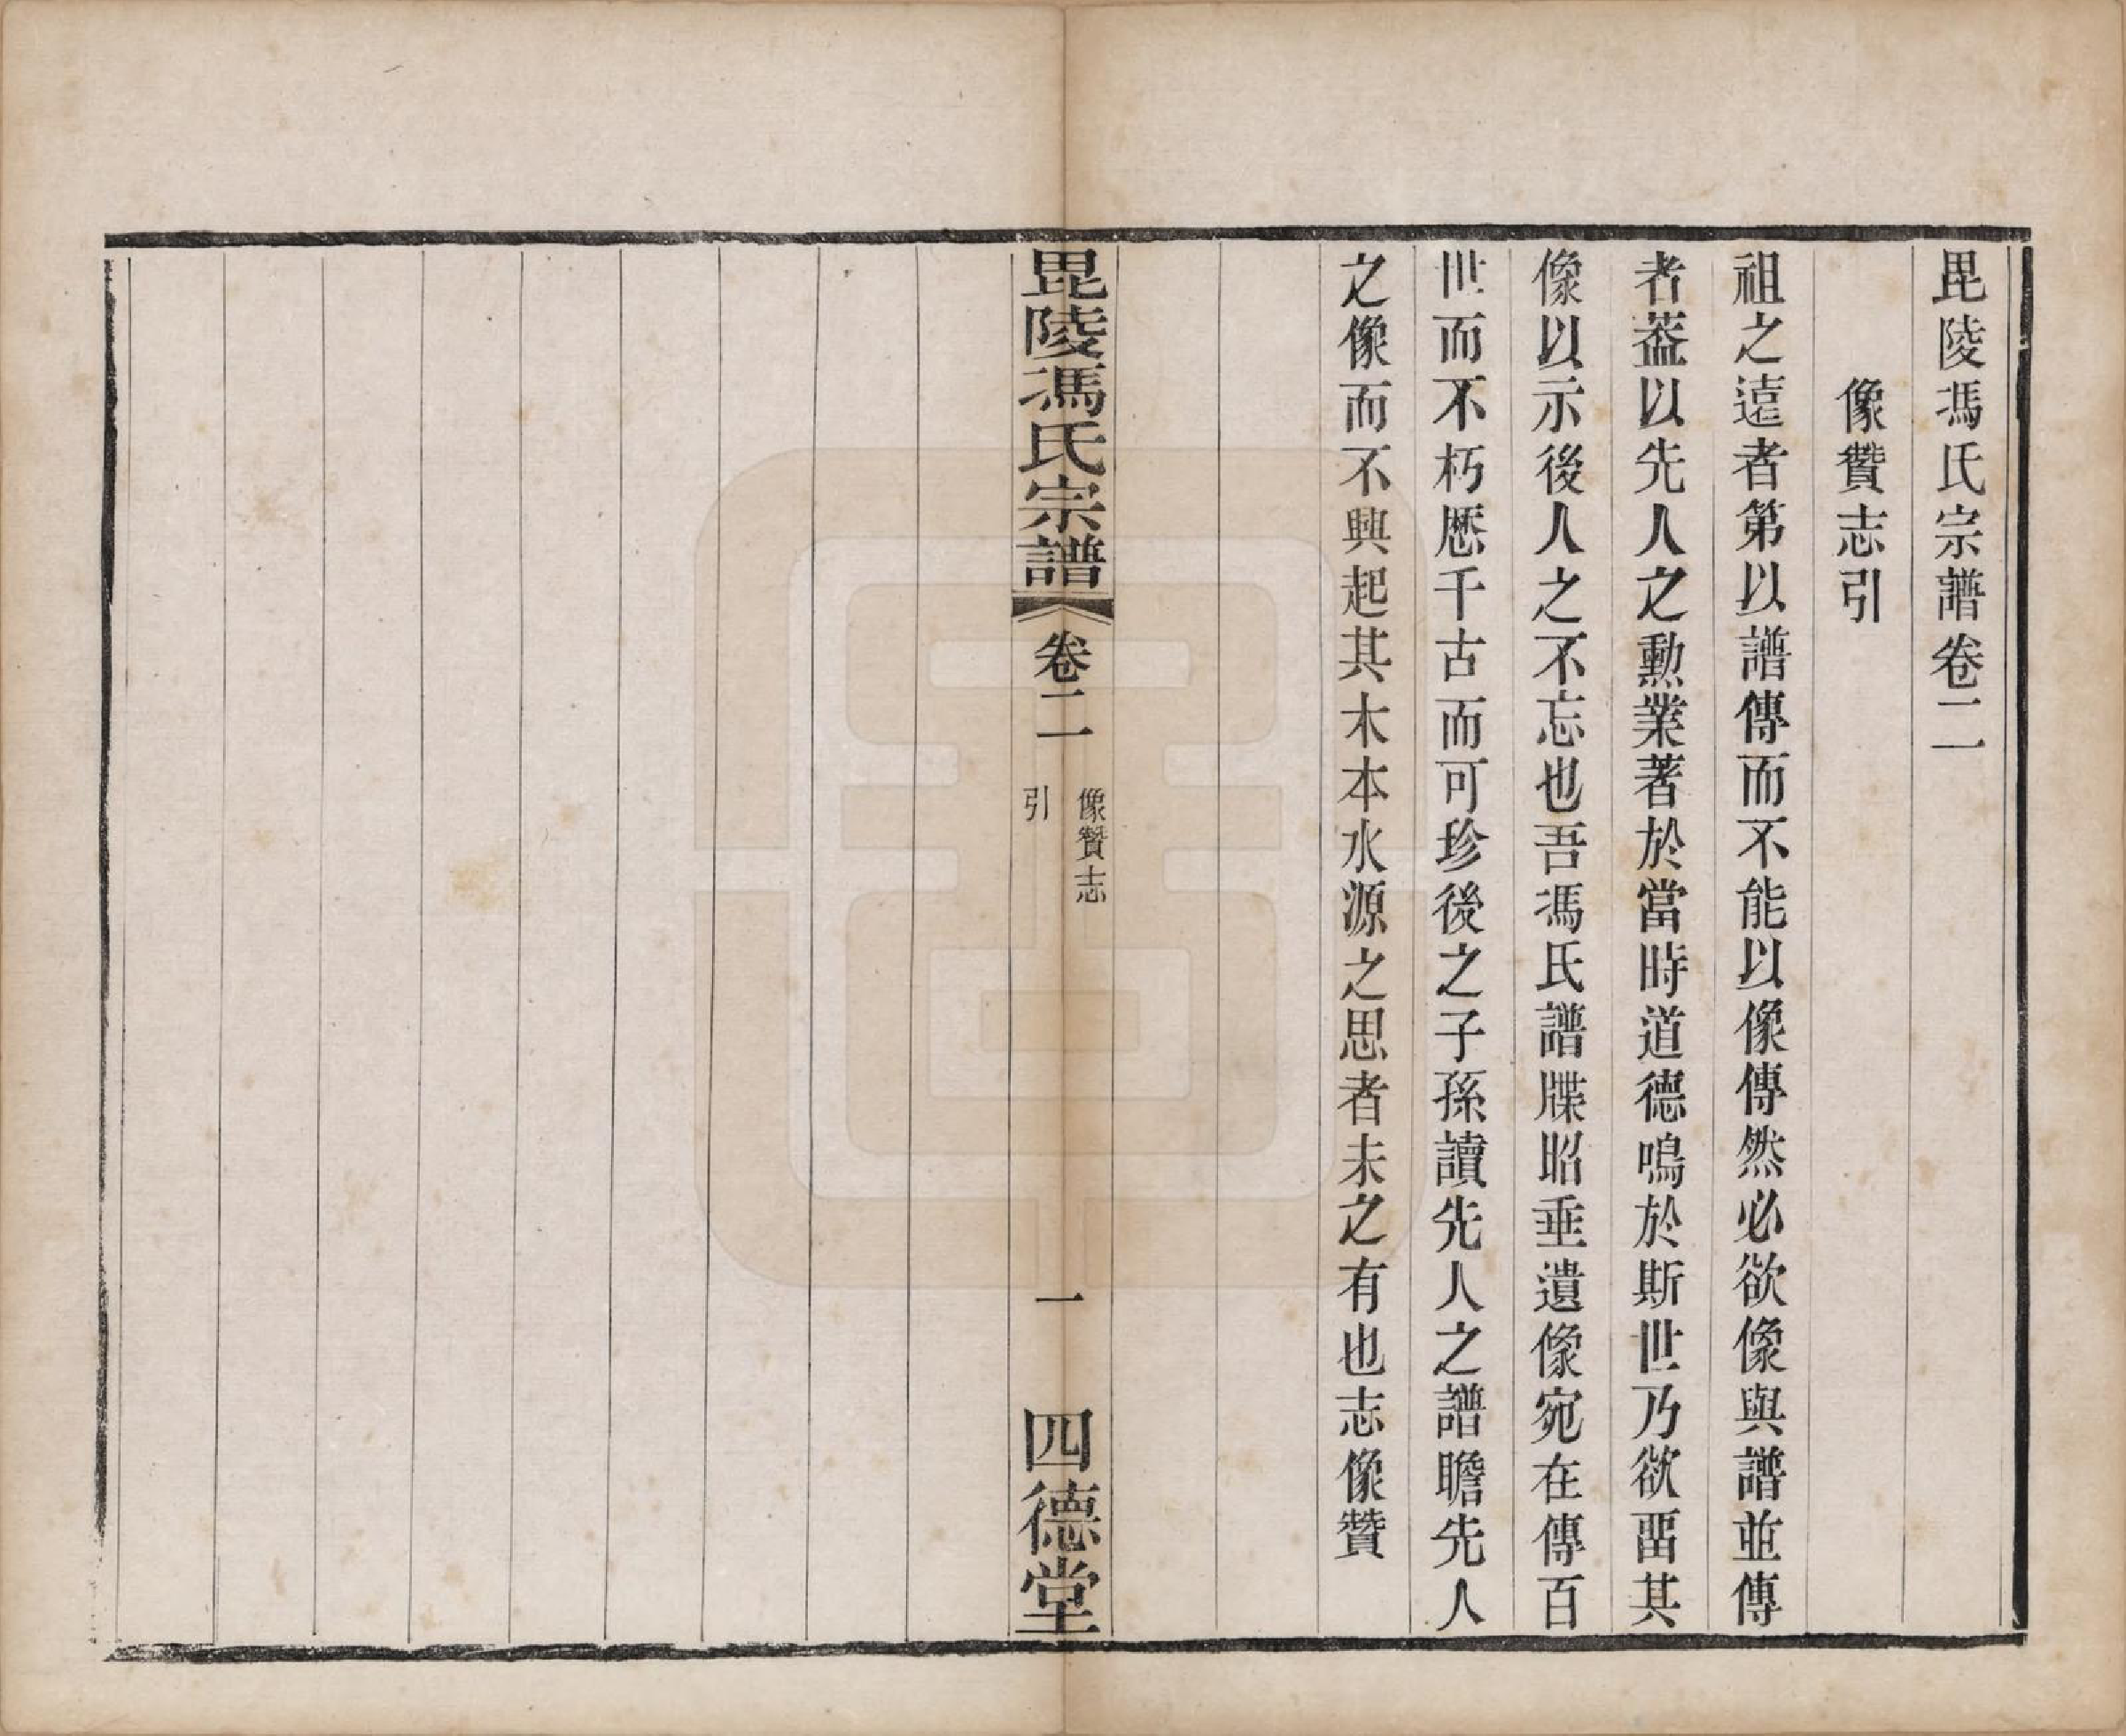 毘陵馮氏宗譜卷二
像贊志引
祖之遠者第以譜傳而不能以像傳然必欲像與譜並傳
者葢以先人之勳業著於當時道德鳴於斯世乃欲畱其
像以示後人之不忘也吾馮氏譜牒昭垂遺像宛在傳百
世而不朽厯千古而可珍後之子孫讀先人之譜瞻先人
之像而不興起其木本水源之思者未之有也志像贊
毘陵馮氏宗譜
卷二
像贊志
引
一
四德堂